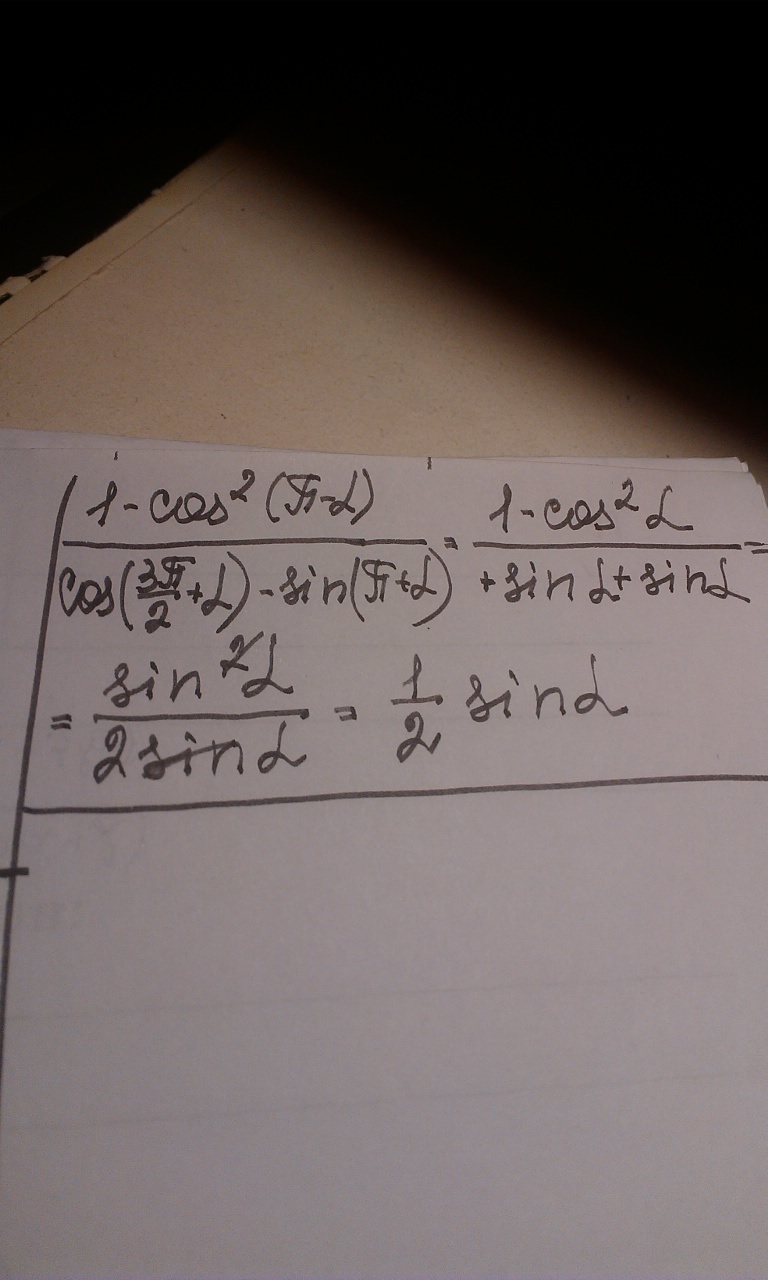 (1-cos²(π-α))/(cos(3π/2+α)-sin(π+α)) = (1-cos²α)/(+sinα+sinα) =
= sin²α/2sinα = 1/2 sinα